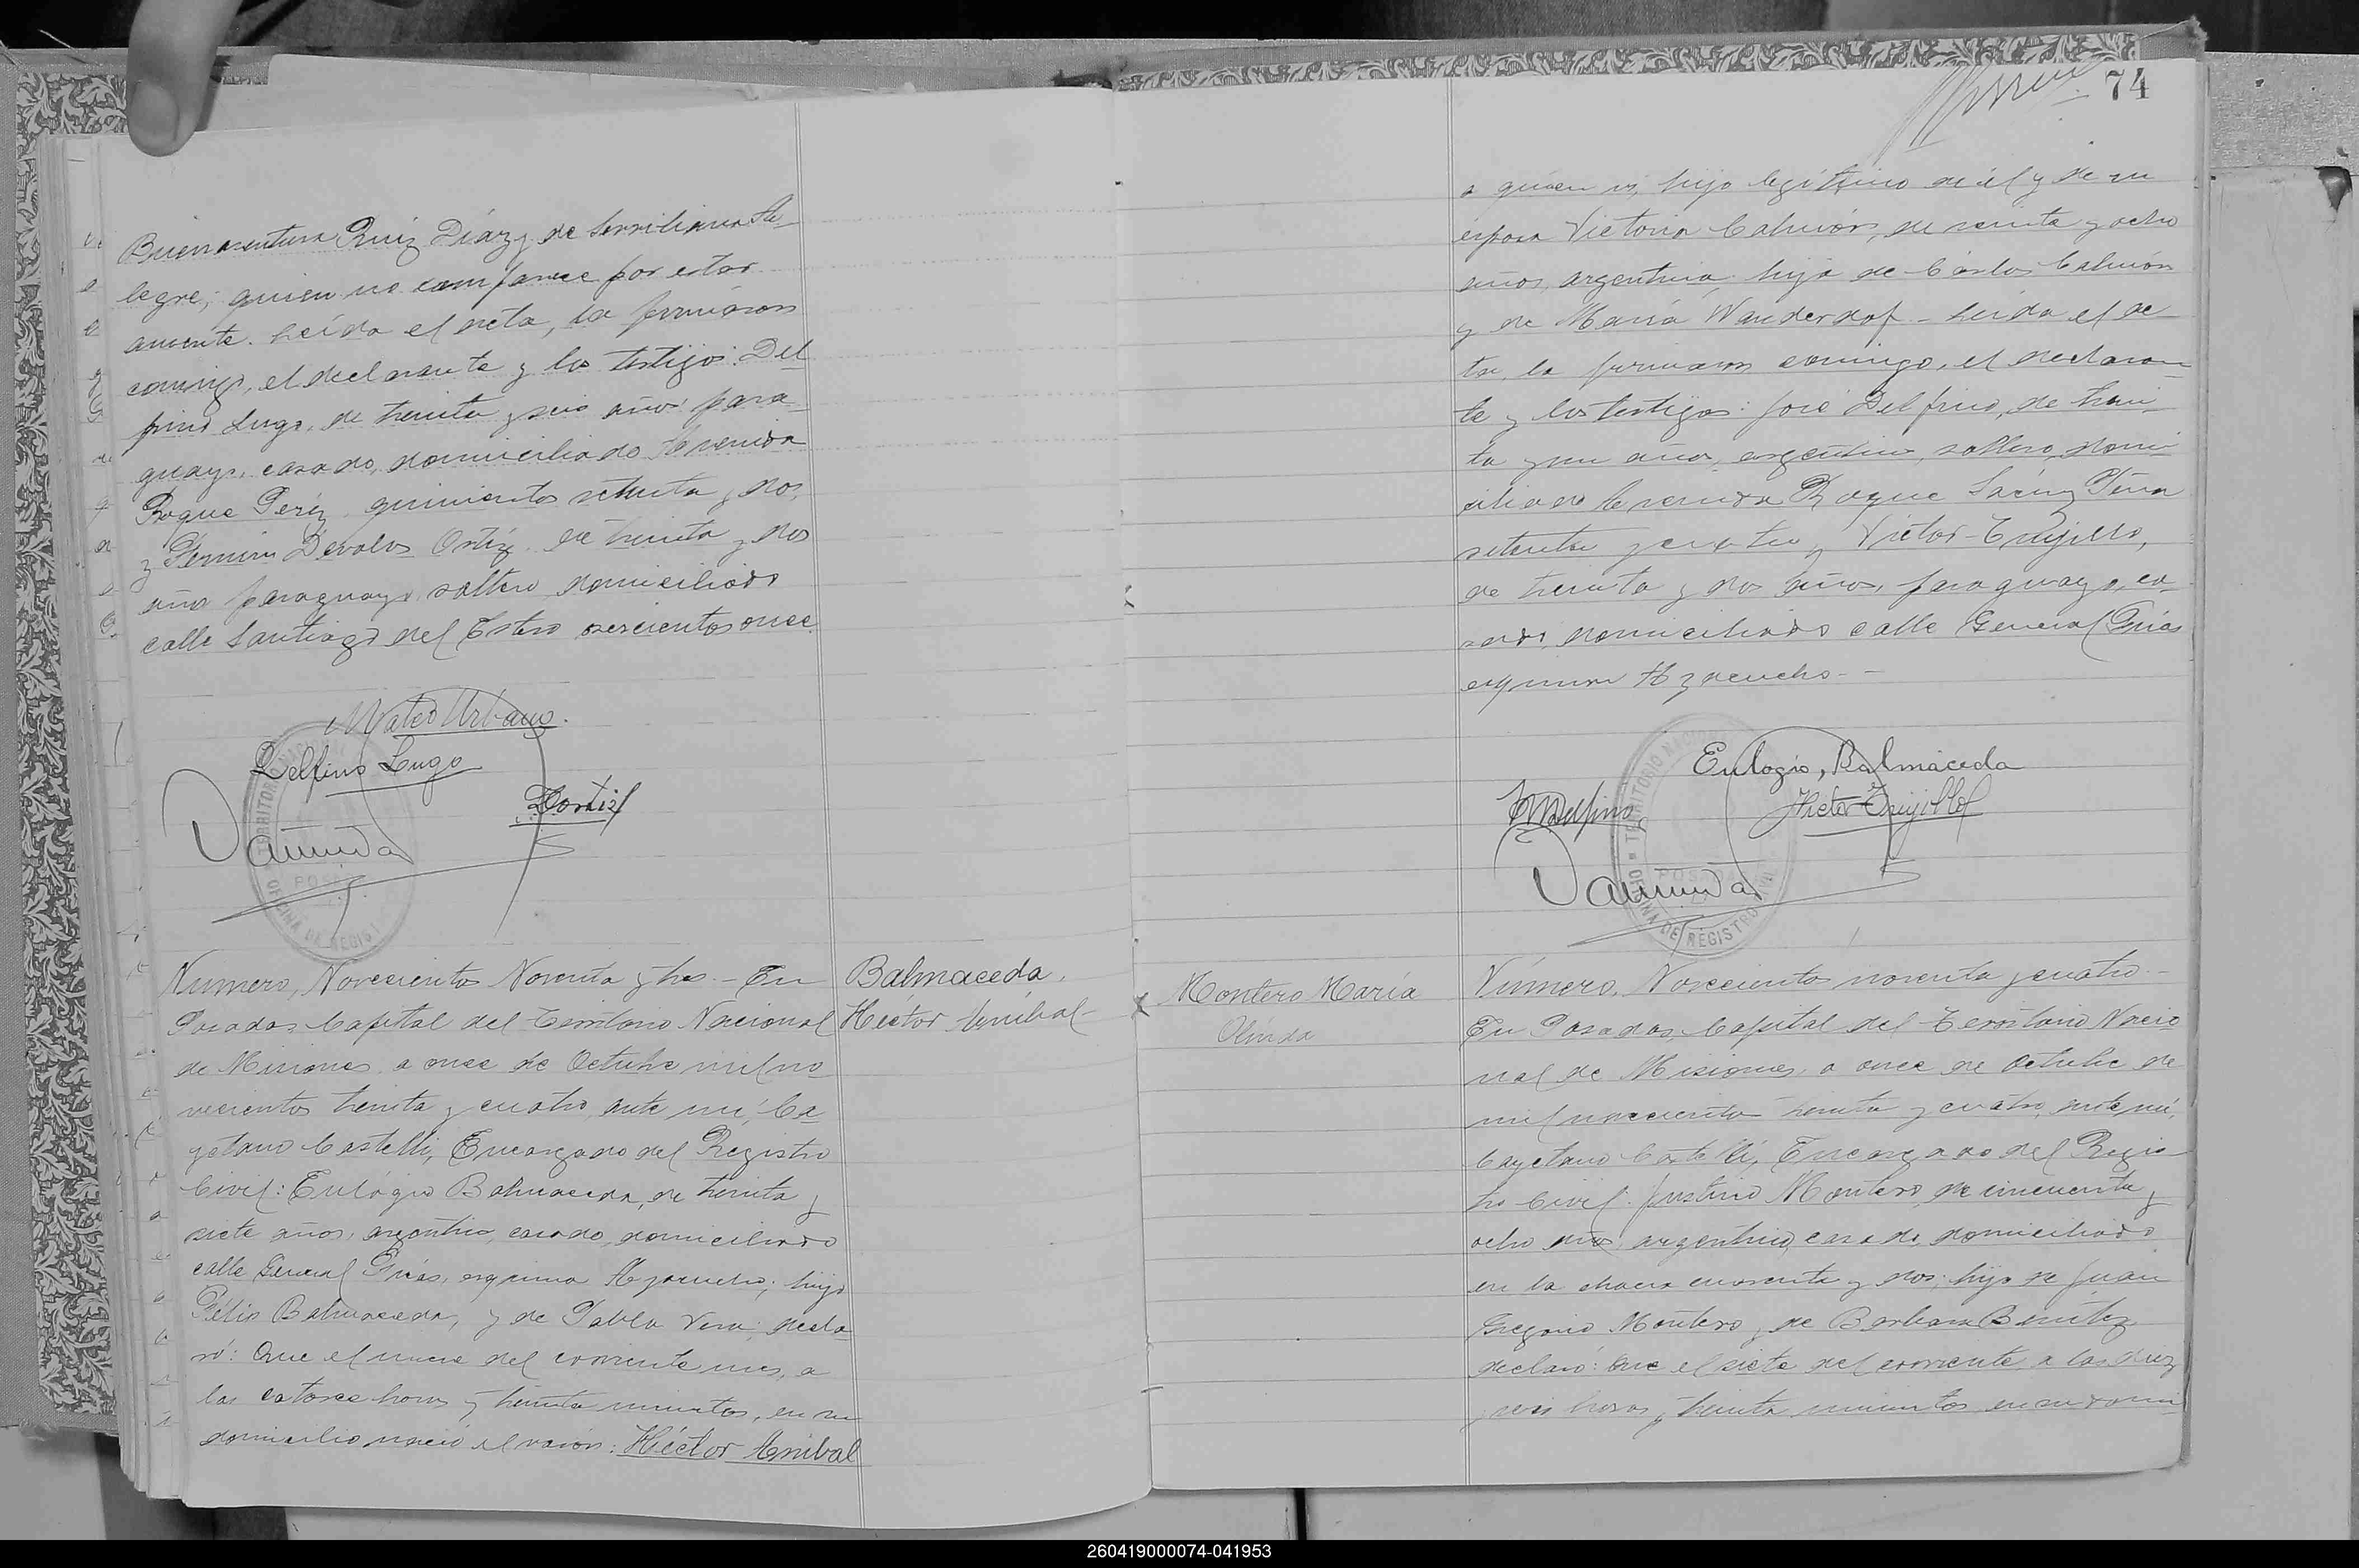 Buenaventura Ruíz Díaz y de Serviliana Ale-
legre; quien no comparece por estar
ausente. Leída el acta, la firmaron
conmigo, el declarante y los testigos: Del
fino Lugo, de treinta y seis años para
guayo, casado, domiciliado Avenida
Roque Peréz, quinientos setenta y dos,
y Fermín Dévalos Ortíz, de treinta y dos
años paraguayo, soltero domiciliado
calle Santiago del Estero seiscientos once
Mateo Urbano.
Delfino Lugo
Número, Novecientos Noventa y tres. - En
Posadas Capital del Territorio Nacional
de Misiones, a once de Octubre mil no
vecientos treinta y cuatro, ante mí, Ca
yetano Castelli, Encargado del Registro
Civil: Eulógio Balmaceda, de treinta y
siete años, argentino, casado, domiciliado
calle General Frías, esquina Ayacucho; hijo
Félix Balmaceda, y de Pabla Vera; decla
ró: Que el nueve del corriente mes, a
las catorce horas y treinta minutos, en su
domicilio nació el varón: Héctor Aníbal
Balmaceda.
Héctor Aníbal
74
a quien vi, hijo legítimo de él y de su
esposa Victoria Cabrión, de veinte y ocho
años, argentina, hija de Cárlos Cabrión
y de María Wanderdof - Leída el ac
ta, la firmaron conmigo, el declaran-
te y los testigos: José Delfino, de trein
ta y un años, argentino, soltero, domi
ciliado Avenida Roque Saénz Peña
setenta y cuatro y Victor Trujillo,
de treinta y dos años, paraguayo, ca
sado, domiciliado calle General Frías
esquina Ayacucho. -
Eulogio, Balmaceda
Victor Trujillo
TERRITORIO
POSADAS
OFICINA DE REGISTRO
Montero María
Olinda
Número, Novecientos noventa y cuatro. -
En Posadas, Capital del Territorio Nacio
nal de Misiones, a once de Octubre de
mil novecientos treinta y cuatro, ante mí,
Cayetano Castelli, Encargado del Regis
tro Civil: Justino Montero, de cincuenta y
ocho años, argentino, casado, domiciliado
en la chacra cuarenta y dos; hijo de Juan
Gregorio Montero y de Barbara Benítez
declaró: Que el siete del corriente a las diez
y seis horas y treinta minutos en su domi
260419000074-041953